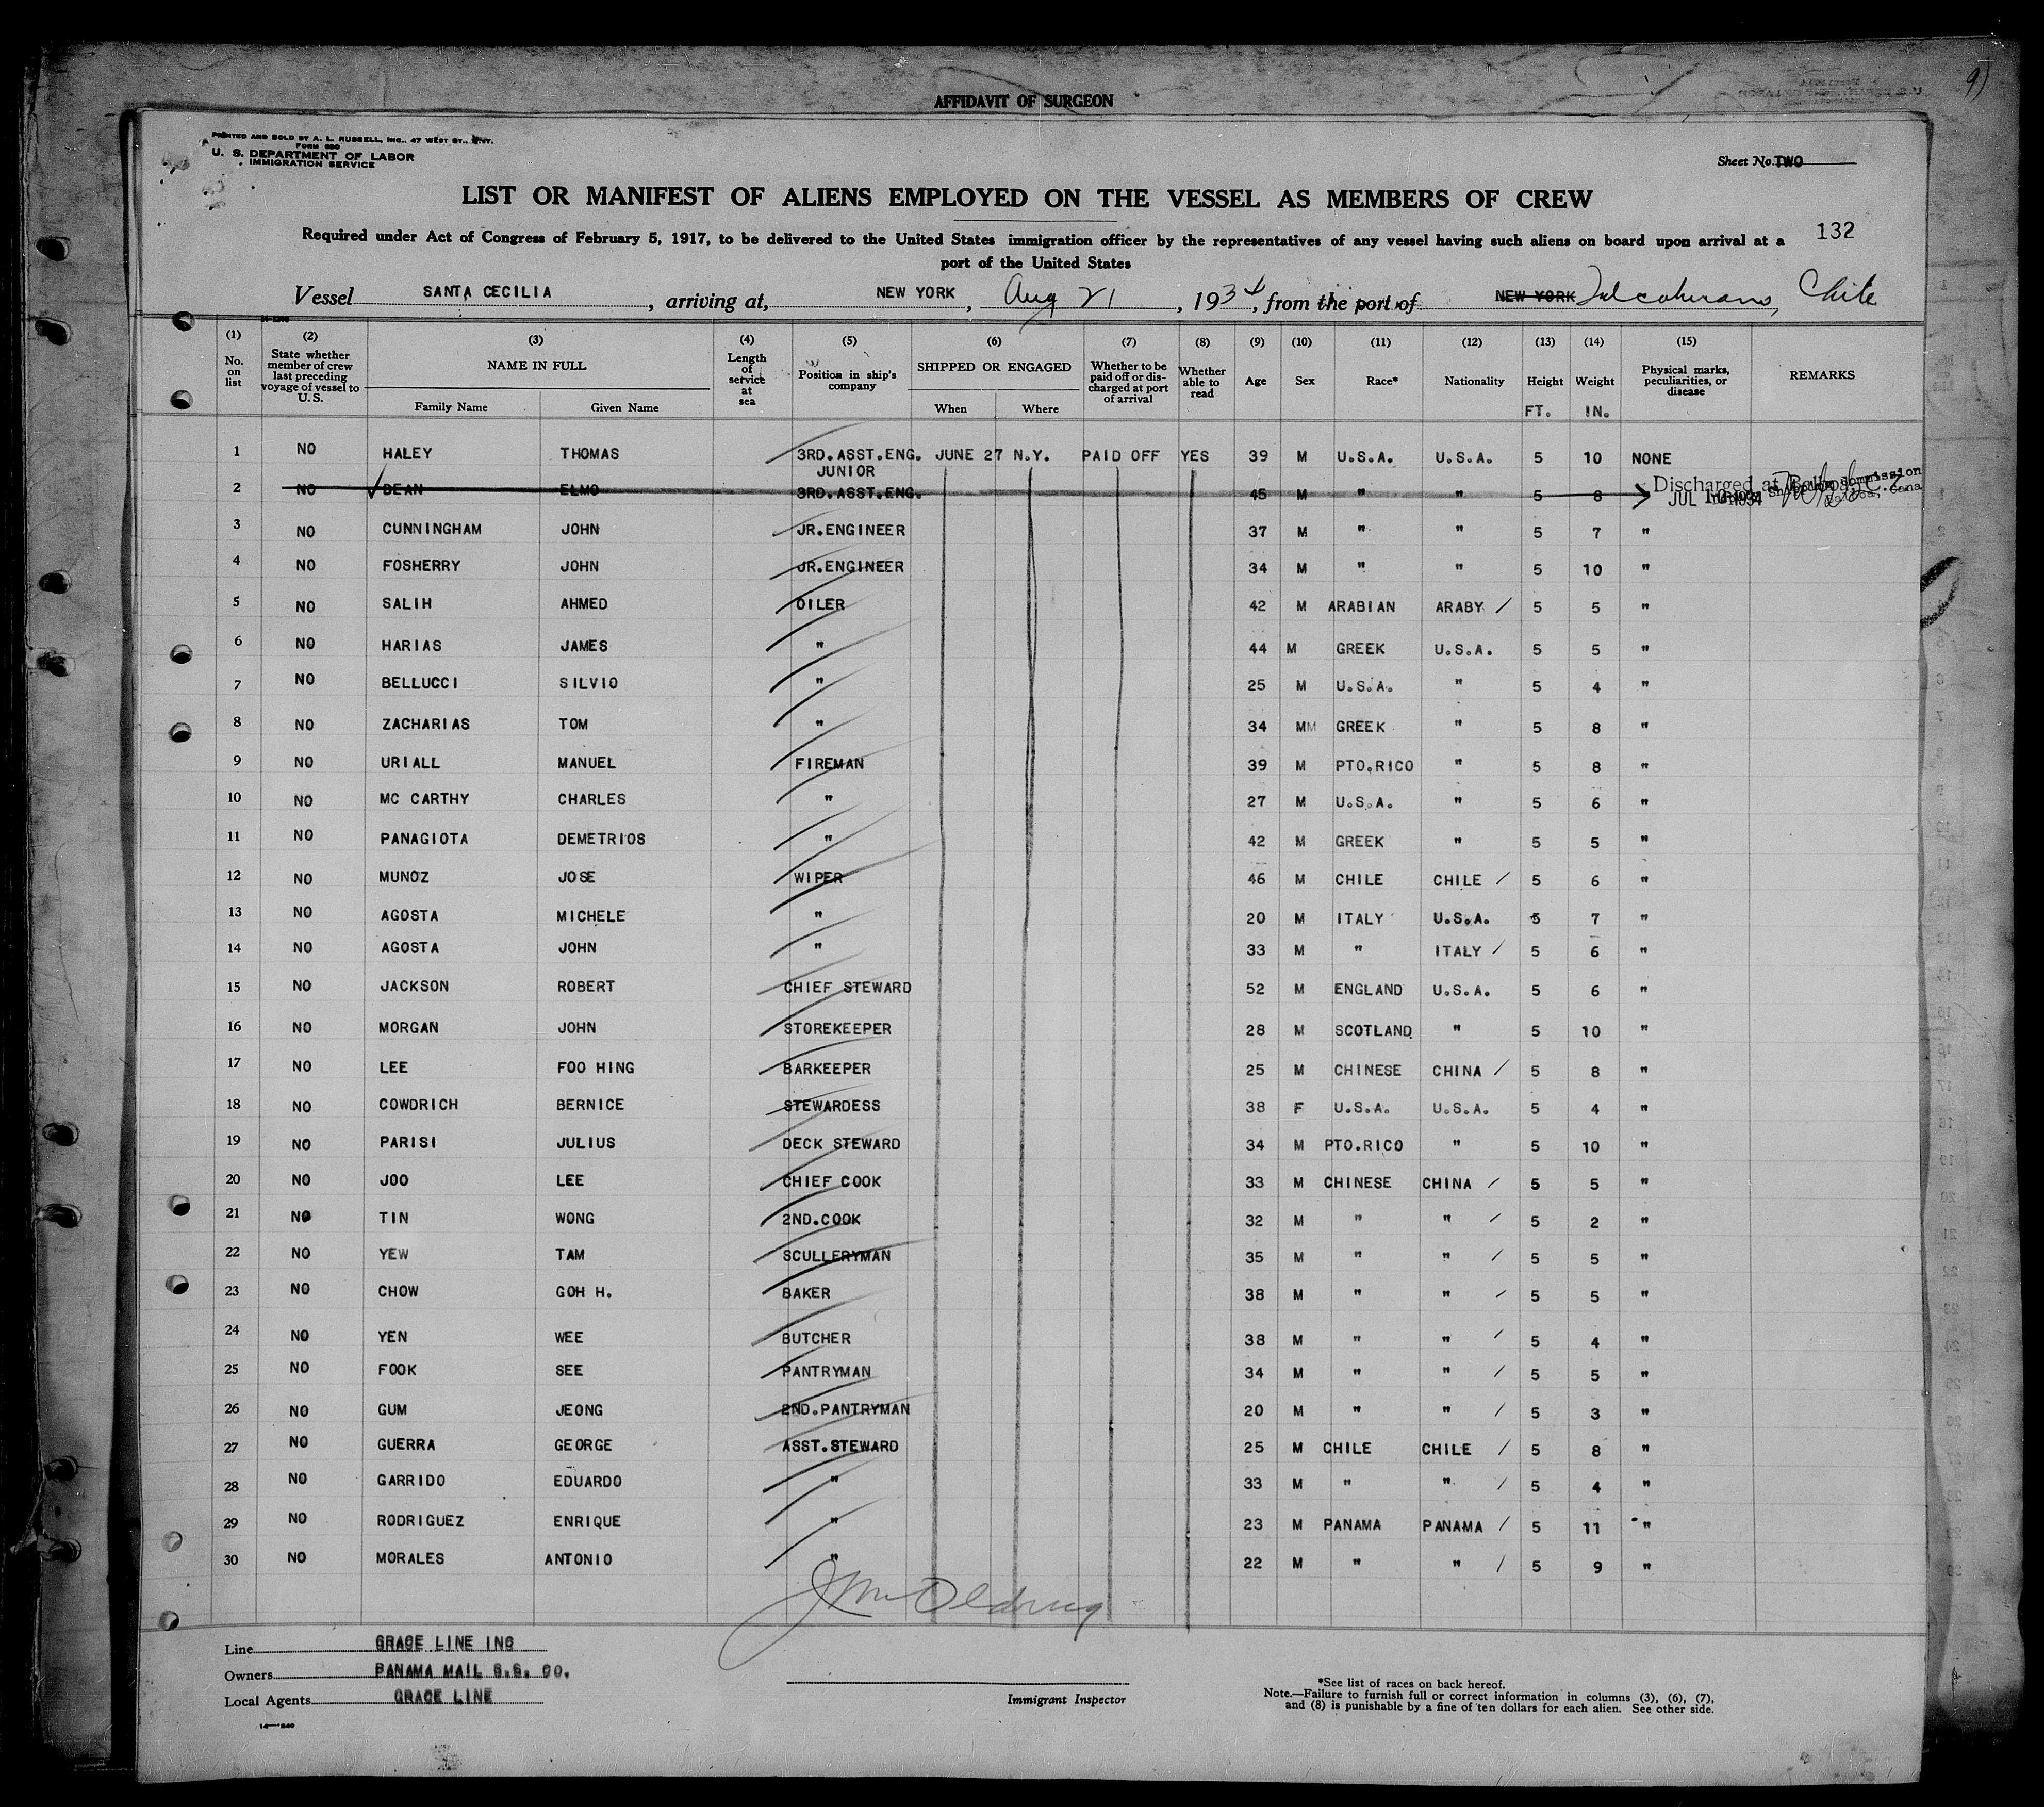 AFFIDAVIT OF SURGEON
PRINTED AND SOLD BY A. L. RUSSELL, INC., 47 WEST ST., N.Y.
FORM 680
U. S. DEPARTMENT OF LABOR
IMMIGRATION SERVICE
Sheet No. TWO
LIST OR MANIFEST OF ALIENS EMPLOYED ON THE VESSEL AS MEMBERS OF CREW
132
Required under Act of Congress of February 5, 1917, to be delivered to the United States immigration officer by the representatives of any vessel having such aliens on board upon arrival at a
port of the United States
Vessel SANTA CECILIA, arriving at, NEW YORK, Aug 21, 1934, from the port of NEW YORK Chile
(1) No. on list (2) State whether member of crew last preceding voyage of vessel to U. S. (3) NAME IN FULL Family Name Given Name (4) Length of service at sea (5) Position in ship's company (6) SHIPPED OR ENGAGED When Where (7) Whether to be paid off or discharged at port of arrival (8) Whether able to read (9) Age (10) Sex (11) Race* (12) Nationality (13) Height FT. (14) Weight IN. (15) Physical marks, peculiarities, or disease REMARKS
1 NO HALEY THOMAS 3RD.ASST.ENG. JUNE 27 N.Y. PAID OFF YES 39 M U.S.A. U.S.A. 5 10 NONE
2 NO DEAN ELMO JUNIOR 3RD.ASST.ENG. 45 M " " 5 8 Discharged at Balboa, C. Z. JUL 1934
3 NO CUNNINGHAM JOHN JR.ENGINEER 37 M " " 5 7 "
4 NO FOSHERRY JOHN JR.ENGINEER 34 M " " 5 10 "
5 NO SALIH AHMED OILER 42 M ARABIAN ARABY / 5 5 "
6 NO HARIAS JAMES " 44 M GREEK U.S.A. 5 5 "
7 NO BELLUCCI SILVIO " 25 M U.S.A. " 5 4 "
8 NO ZACHARIAS TOM " 34 MM GREEK " 5 8 "
9 NO URIALL MANUEL FIREMAN 39 M PTO.RICO " 5 8 "
10 NO MC CARTHY CHARLES " 27 M U.S.A. " 5 6 "
11 NO PANAGIOTA DEMETRIOS " 42 M GREEK " 5 5 "
12 NO MUNOZ JOSE WIPER 46 M CHILE CHILE / 5 6 "
13 NO AGOSTA MICHELE " 20 M ITALY U.S.A. 5 7 "
14 NO AGOSTA JOHN " 33 M " ITALY / 5 6 "
15 NO JACKSON ROBERT CHIEF STEWARD 52 M ENGLAND U.S.A. 5 6 "
16 NO MORGAN JOHN STOREKEEPER 28 M SCOTLAND " 5 10 "
17 NO LEE FOO HING BARKEEPER 25 M CHINESE CHINA / 5 8 "
18 NO COWDRICH BERNICE STEWARDESS 38 F U.S.A. U.S.A. 5 4 "
19 NO PARISI JULIUS DECK STEWARD 34 M PTO.RICO " 5 10 "
20 NO JOO LEE CHIEF COOK 33 M CHINESE CHINA / 5 5 "
21 NO TIN WONG 2ND.COOK 32 M " " / 5 2 "
22 NO YEW TAM SCULLERYMAN 35 M " " / 5 5 "
23 NO CHOW GOH H. BAKER 38 M " " / 5 5 "
24 NO YEN WEE BUTCHER 38 M " " / 5 4 "
25 NO FOOK SEE PANTRYMAN 34 M " " / 5 5 "
26 NO GUM JEONG 2ND.PANTRYMAN 20 M " " / 5 3 "
27 NO GUERRA GEORGE ASST.STEWARD 25 M CHILE CHILE / 5 8 "
28 NO GARRIDO EDUARDO " 33 M " " / 5 4 "
29 NO RODRIGUEZ ENRIQUE " 23 M PANAMA PANAMA / 5 11 "
30 NO MORALES ANTONIO " 22 M " " / 5 9 "
Line GRACE LINE INC
Owners PANAMA MAIL S.S. CO.
Local Agents GRACE LINE
Immigrant Inspector
*See list of races on back hereof.
Note.—Failure to furnish full or correct information in columns (3), (6), (7),
and (8) is punishable by a fine of ten dollars for each alien. See other side.